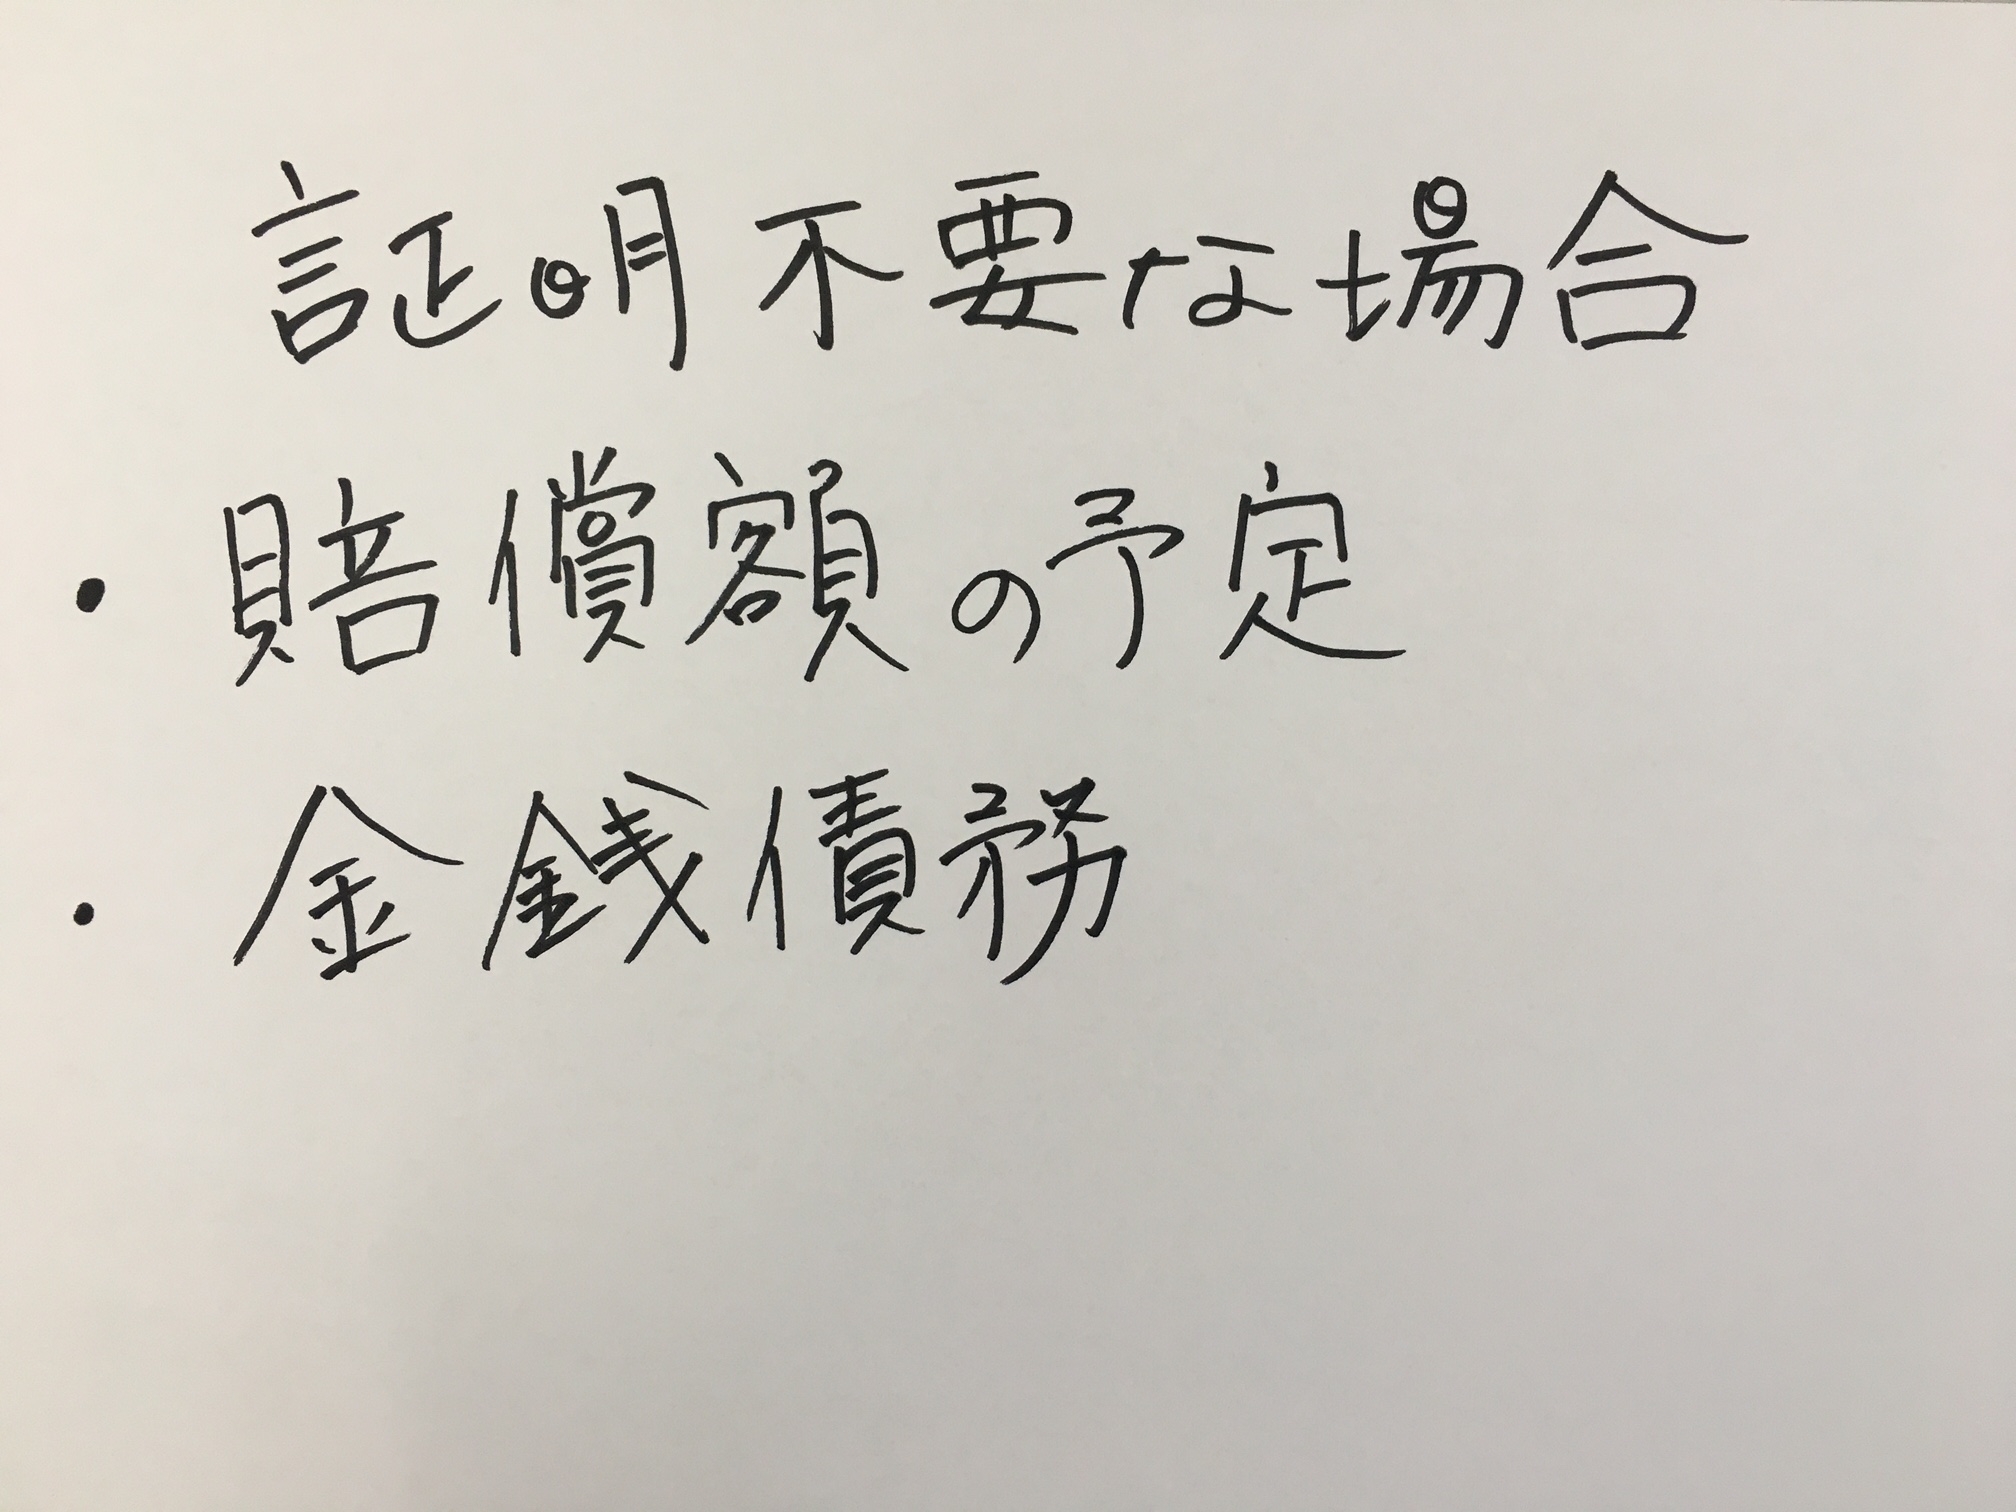 証明不要な場合
・賠償額の予定
・金銭債務